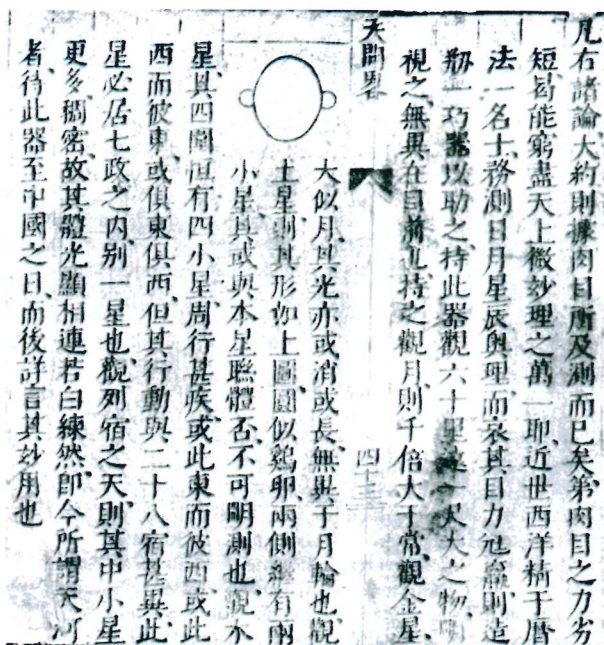 凡右諸論、大約則據肉目所及測而已矣、第肉目之力劣
短、曷能窮盡天上微妙理之萬一耶、近世西洋精于曆
法一名士、務測日月星辰奧理、而哀其目力尫羸、則造
剏一巧器以助之、持此器觀六十里遠一尺大之物、明
視之、無異在目前也、持之觀月、則千倍大于常、觀金星、
天問畧 四十三
大似月、其光亦或消或長、無異于月輪也、觀
土星、則其形如上圖、圓似鷄卵、兩側繼有兩
小星、其或與本星聯體否、不可明測也、觀木
星、其四圍恒有四小星、周行甚疾、或此東而彼西、或此
西而彼東、或俱東俱西、但其行動與二十八宿甚異、此
星必居七政之内、别一星也、觀列宿之天、則其中小星
更多稠密、故其體光顯相連若白練然、即今所謂天河
者、待此器至中國之日、而後詳言其妙用也